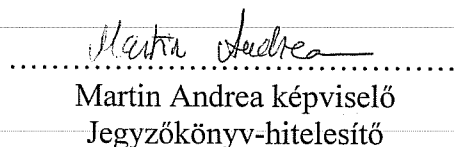 Martin Andrea
Martin Andrea képviselő
Jegyzőkönyv-hitelesítő